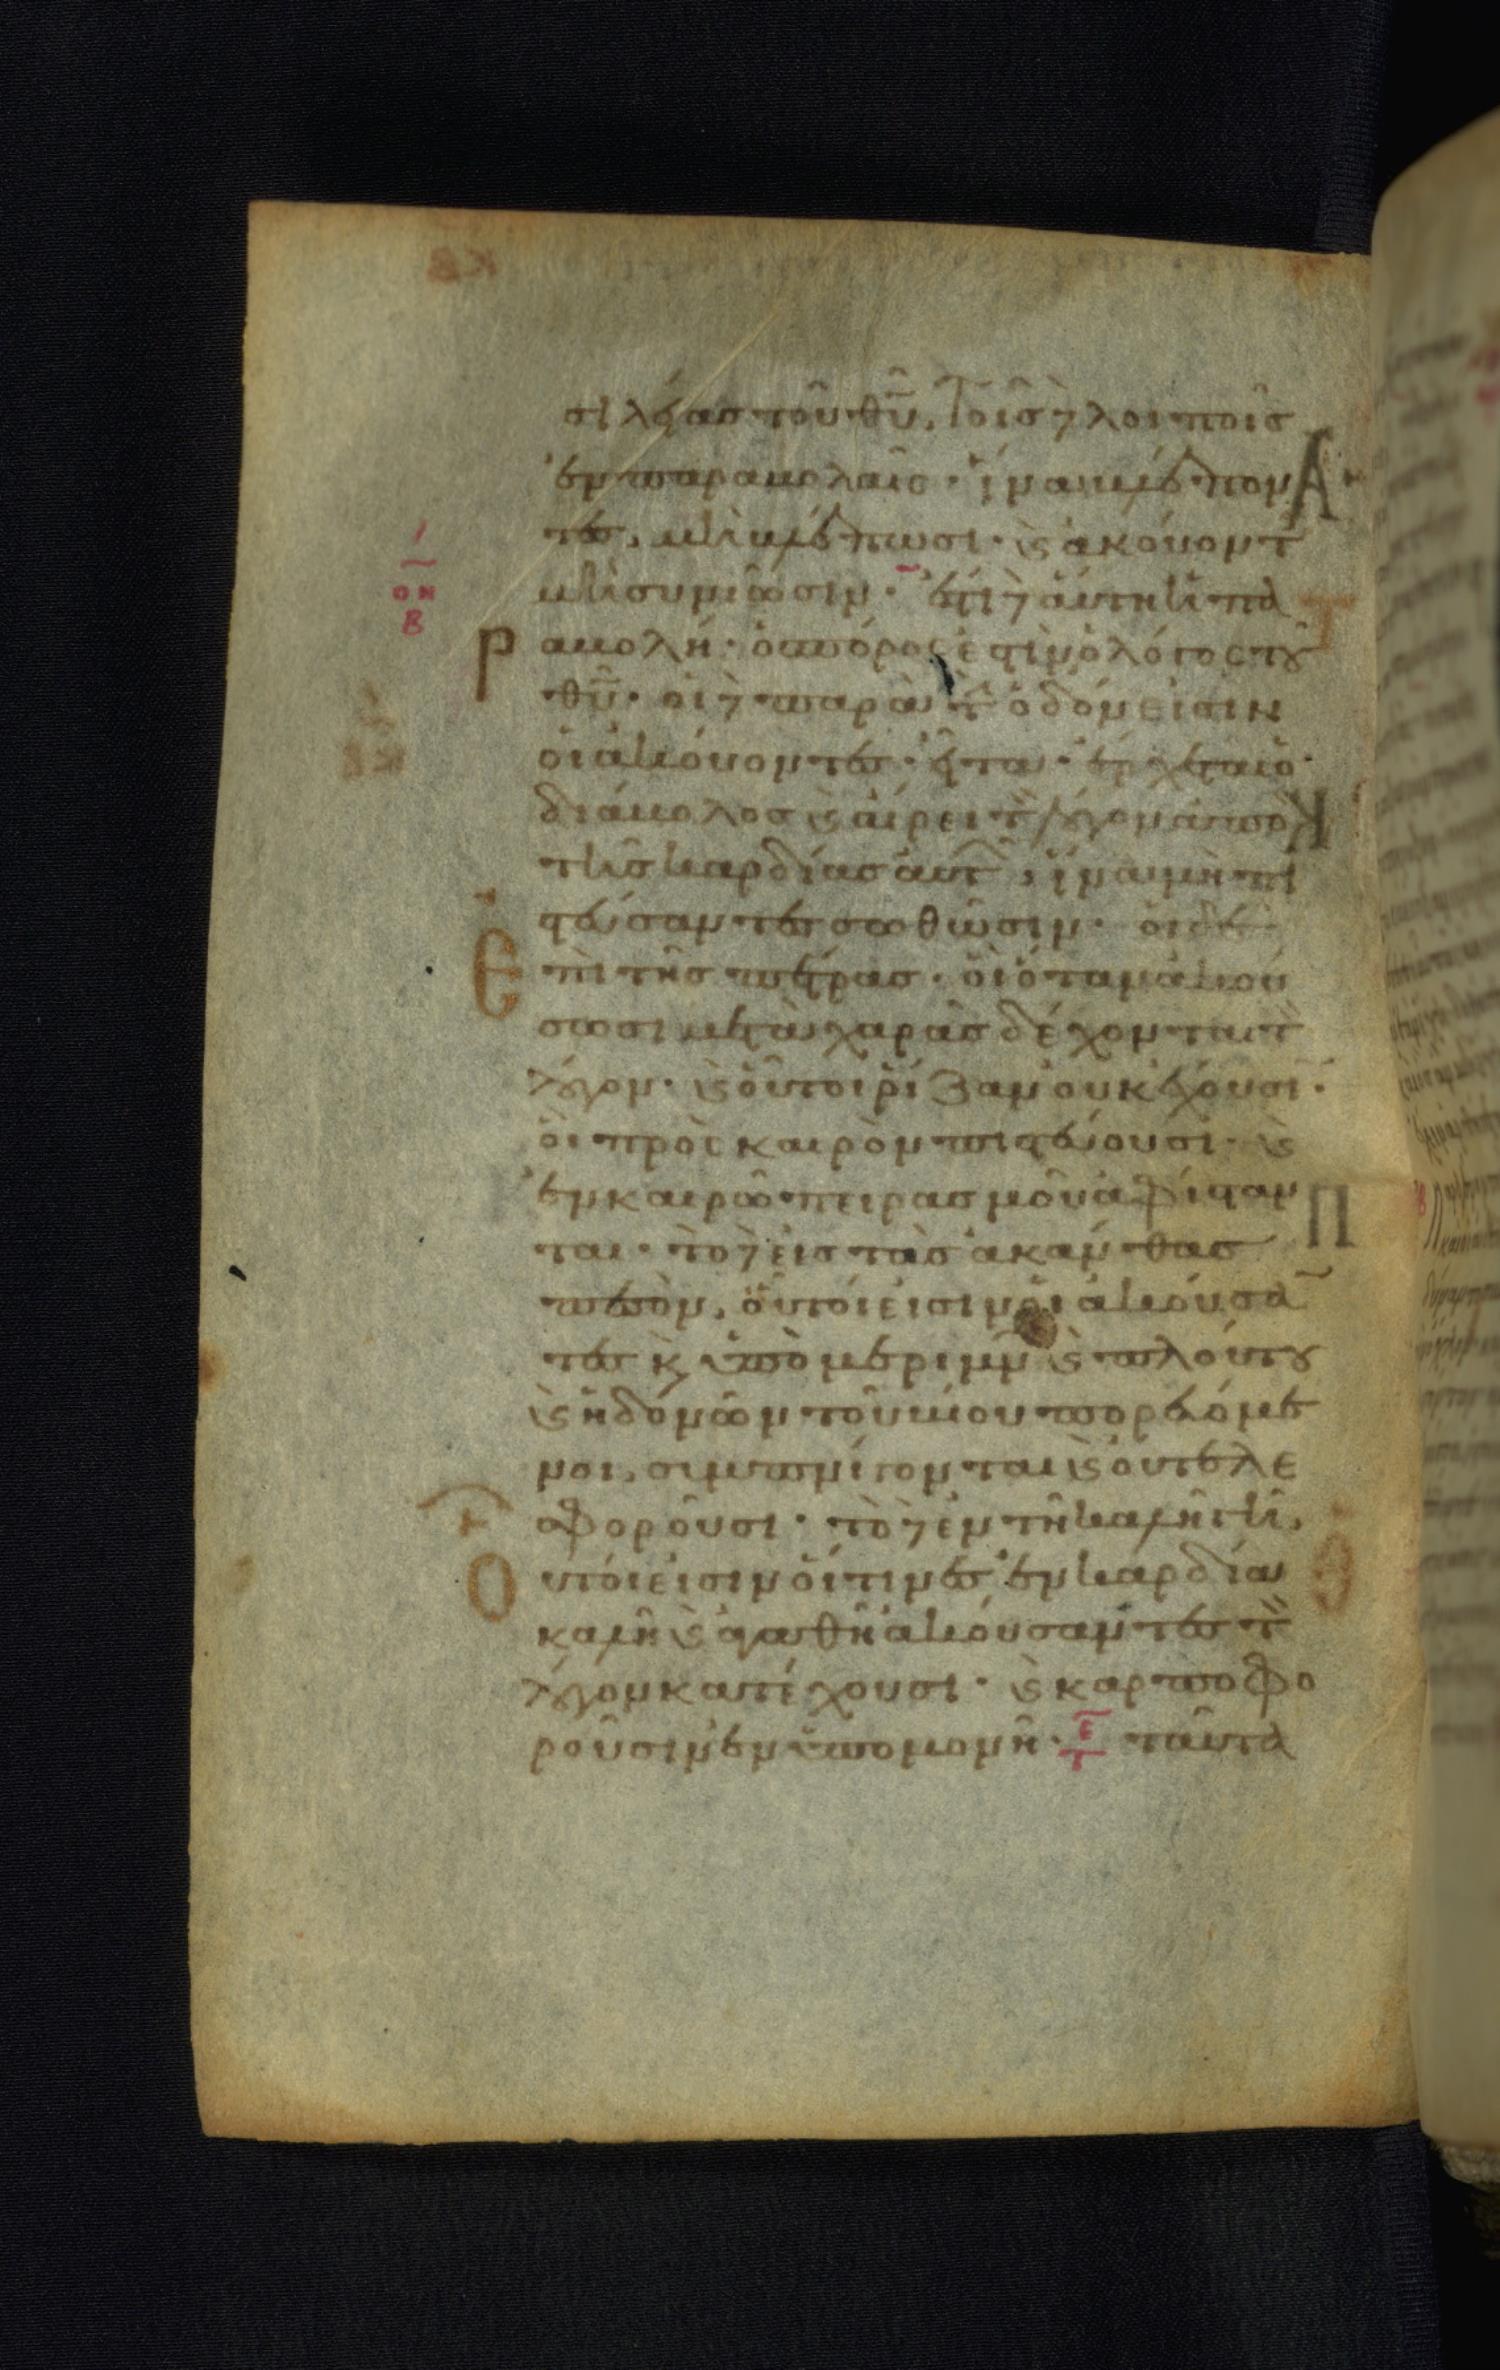 σιλείας τοῦ θῦ, τοῖς δε λοιποῖς
ἐν παραβολαῖς· ἵνα βλέπον
τες, μὴ βλέπωσι· καὶ ἀκούοντ
μὴ συνιῶσιν· ἔστι δε ἁύτη ἡ πα
ραβολή· ὁ σπόρος ἐστὶν ὁ λόγος τοῦ
θῦ· οἱ δε παρὰ τὴν ὁδόν εἰσιν
οἱ ἀκούοντες· εἶτα ἔρχεται ὁ
διάβολος καὶ αἴρει τὸν λόγον ἀπὸ
τῆς καρδίας αὐτῶν, ἵνα μὴ πι
στεύσαντες σωθῶσιν· οἱ δὲ
ἐπὶ τῆς πέτρας· οἳ ὅταν ἀκού
σωσι μετὰ χαρᾶς δέχονται τὸν
λόγον· καὶ οὗτοι ῥίζαν οὐκ ἔχουσι·
οἳ πρὸς καιρὸν πιστεύουσι· καὶ
ἐν καιρῶ πειρασμοῦ ἀφίσταν
ται· τὸ δε εἰς τὰς ἀκάνθας
πεσὸν, οὗτοί εἰσιν οἱ ἀκούσα
τες κ ὑπὸ μεριμνῶν καὶ πλούτου
καὶ ἡδονῶν τοῦ βίου πορευόμε
νοι, συμπνίγονται καὶ οὐ τελε
σφοροῦσι· τὸ δε ἐν τῆ καλῆ γῆ,
Οὗτοί εἰσιν οἵτινες ἐν καρδία
καλῆ καὶ ἀγαθῆ ἀκούσαντες τὸν
λόγον κατέχουσι· καὶ καρποφο
ροῦσιν ἐν ὑπομονῆ· ταῦτα